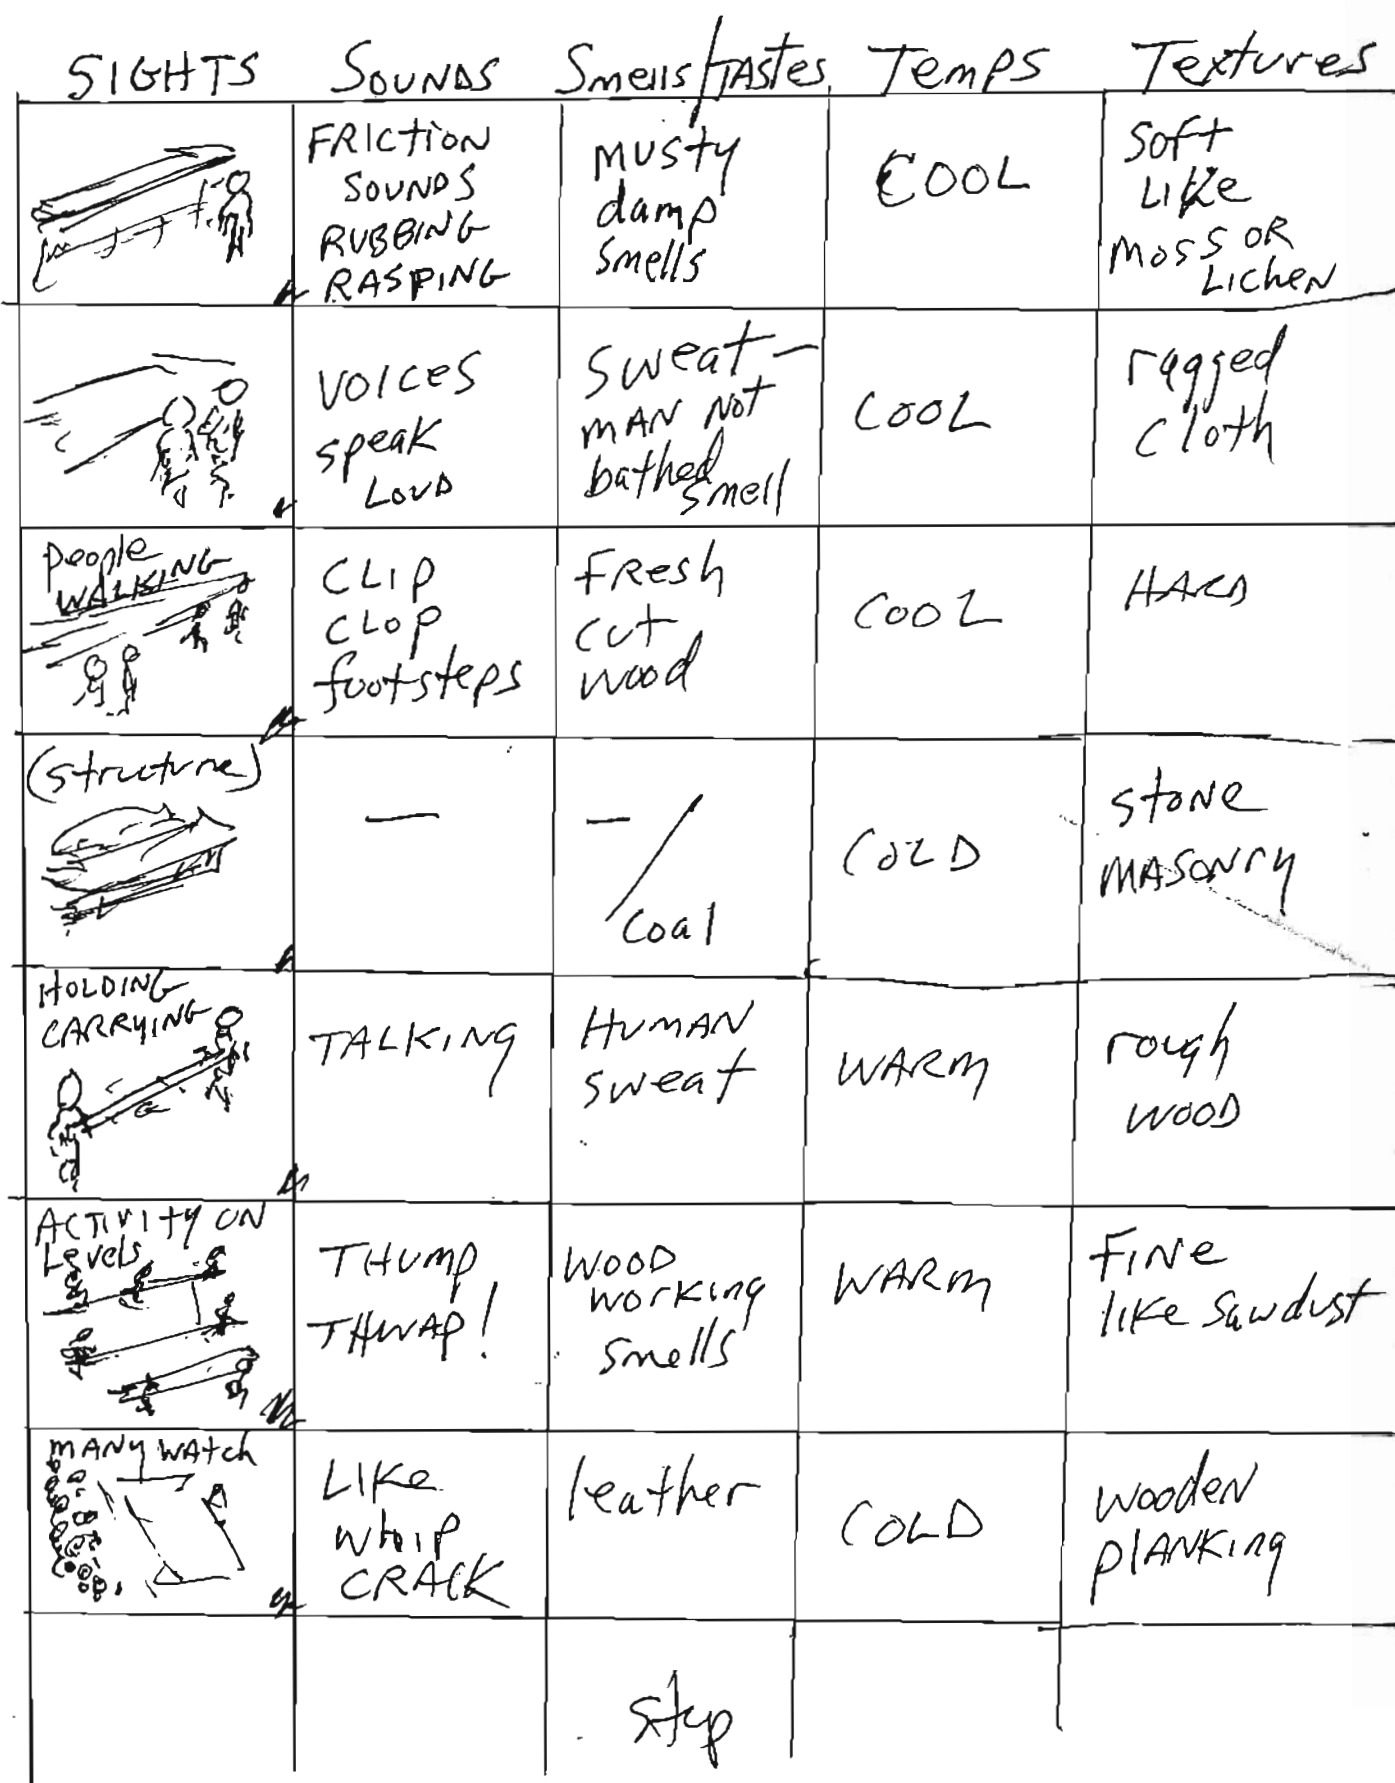 SIGHTS SOUNDS Smells/TAStes Temps Textures
FRICTION
SOUNDS
RUBBING
RASPING
MUSty
damp
Smells
COOL
Soft
LIKe
MOSS OR
LICHEN
VOICES
SpeaK
LOUD
Sweat—
MAN NOT
bathed
smell
COOL
ragged
Cloth
People
WALKING
CLIP
CLOP
footsteps
FResh
cut
wood
COOL
HARD
(structure)
—
—
/
Coal
COLD
StONe
MASONry
HOLDING
CARRYING
TALKING
HUMAN
sweat
WARM
rough
WOOD
ACTIVITY ON
Levels
THUMP
THWAP!
WOOD
working
Smells
WARM
FINE
like Sawdust
MANY WAtch
LIKe
whip
CRACK
leather
COLD
Wooden
PLANKING
Stop